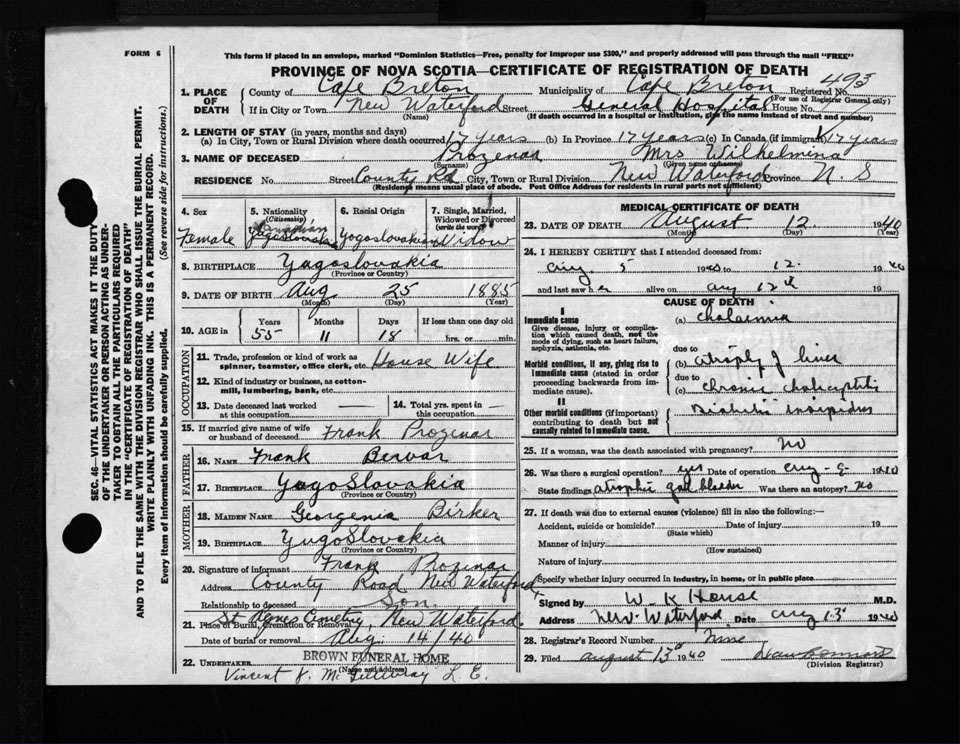 FORM 6
This form if placed in an envelope, marked "Dominion Statistics—Free, penalty for improper use $300," and properly addressed will pass through the mail "FREE"
PROVINCE OF NOVA SCOTIA—CERTIFICATE OF REGISTRATION OF DEATH
SEC. 46—VITAL STATISTICS ACT MAKES IT THE DUTY
OF THE UNDERTAKER OR PERSON ACTING AS UNDER-
TAKER TO OBTAIN ALL THE PARTICULARS REQUIRED
IN THE "CERTIFICATE OF REGISTRATION OF DEATH"
AND TO FILE THE SAME WITH THE DIVISION REGISTRAR WHO SHALL ISSUE THE BURIAL PERMIT.
WRITE PLAINLY WITH UNFADING INK. THIS IS A PERMANENT RECORD.
Every item of information should be carefully supplied. (See reverse side for instructions.)
1. PLACE OF DEATH
County of Cape Breton Municipality of Cape Breton Registered No. 493
(For use of Registrar General only)
If in City or Town New Waterford Street General Hospital House No.
(Name) (If death occurred in a hospital or institution, give the name instead of street and number)
2. LENGTH OF STAY (in years, months and days)
(a) In City, Town or Rural Division where death occurred 17 years (b) In Province 17 years (c) In Canada (if immigrant) 17 years
3. NAME OF DECEASED Prozenar Mrs Wilhelmina
(Surname) (Given name or names)
RESIDENCE No. Street County Rd City, Town or Rural Division New Waterford Province N. S
(Residence means usual place of abode. Post Office Address for residents in rural parts not sufficient)
4. Sex Female
5. Nationality (Citizenship) Canadian Yogoslovakia
6. Racial Origin Yogoslovakian
7. Single, Married, Widowed or Divorced (write the word) Widow
8. BIRTHPLACE Yagoslovakia
(Province or Country)
9. DATE OF BIRTH Aug 25 1885
(Month) (Day) (Year)
10. AGE in Years 55 Months 11 Days 18 If less than one day old hrs. or min.
OCCUPATION
11. Trade, profession or kind of work as spinner, teamster, office clerk, etc. House Wife
12. Kind of industry or business, as cotton-mill, lumbering, bank, etc.
13. Date deceased last worked at this occupation —
14. Total yrs. spent in this occupation —
15. If married give name of wife or husband of deceased Frank Prozinar
FATHER
16. NAME Frank Bervar
17. BIRTHPLACE YagoSlovakia
(Province or Country)
MOTHER
18. MAIDEN NAME Georgenia Birker
19. BIRTHPLACE YugoSlovakia
(Province or Country)
20. Signature of informant Frank Prozinar
Address County Road New Waterford
Relationship to deceased Son
21. Place of Burial, Cremation or Removal St Agnes Cemetry, New Waterford.
Date of burial or removal Aug 14/40
22. UNDERTAKER BROWN FUNERAL HOME
(Name and address)
Vincent J. McGillivray L. E.
MEDICAL CERTIFICATE OF DEATH
23. DATE OF DEATH August 12 1940
(Month) (Day) (Year)
24. I HEREBY CERTIFY that I attended deceased from:
Aug 5 1940 to 12. 1940
and last saw her alive on Aug 12th 19
CAUSE OF DEATH
I
Immediate cause
Give disease, injury or complication which caused death, not the mode of dying, such as heart failure, asphyxia, asthenia, etc.
(a) cholaemia
due to
Morbid conditions, if any, giving rise to immediate cause (stated in order proceeding backwards from immediate cause).
(b) atrophy of liver
due to
(c) chronic cholecystitis
II
Other morbid conditions (if important) contributing to death but not causally related to immediate cause.
Diabetis insipidus
25. If a woman, was the death associated with pregnancy? No
26. Was there a surgical operation? yes Date of operation Aug- 1940
State findings atrophic gall bladder Was there an autopsy? No
27. If death was due to external causes (violence) fill in also the following:—
Accident, suicide or homicide? Date of injury 19
(State which)
Manner of injury
(How sustained)
Nature of injury
Specify whether injury occurred in industry, in home, or in public place
Signed by W. K House M.D.
Address New Waterford Date Aug 13 1940
28. Registrar's Record Number
29. Filed August 13th 1940
(Division Registrar)